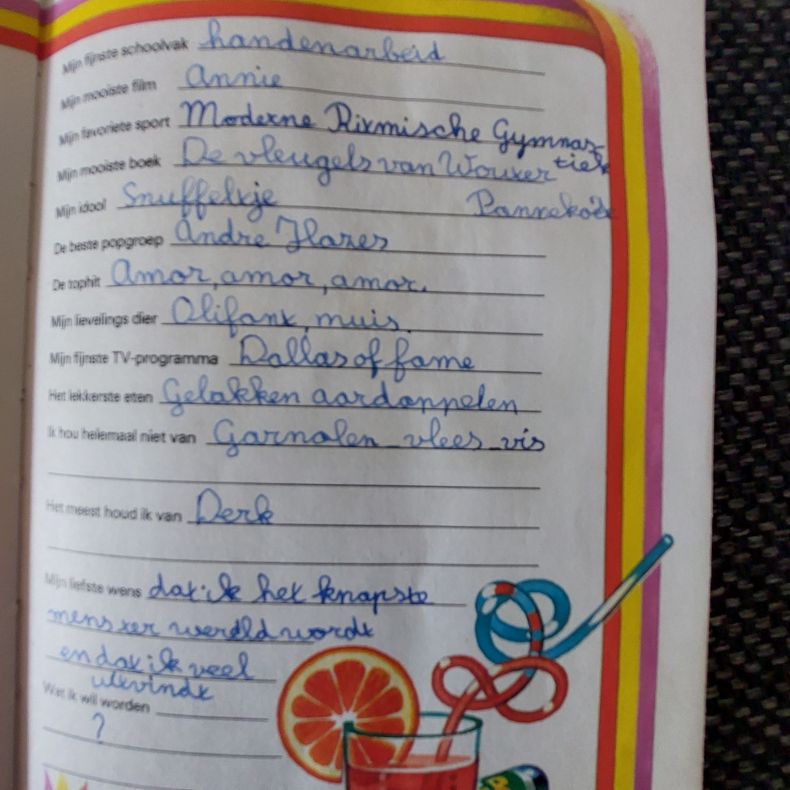 Mijn fijnste schoolvak handenarbeid
Mijn mooiste film Annie
Mijn favoriete sport Moderne Ritmische Gymnas-
tiek
Mijn mooiste boek De vleugels van Wouter
Pannekoek
Mijn idool Snuffeltje
De beste popgroep Andre Hazes
De tophit Amor, amor, amor.
Mijn lievelings dier Olifant, muis.
Mijn fijnste TV-programma Dallas of fame
Het lekkerste eten Gebakken aardappelen
Ik hou helemaal niet van Garnalen vlees vis
Het meest houd ik van Derk
Mijn liefste wens dat ik het knapste
mens ter wereld wordt
en dat ik veel
uitvindt
Wat ik wil worden
?